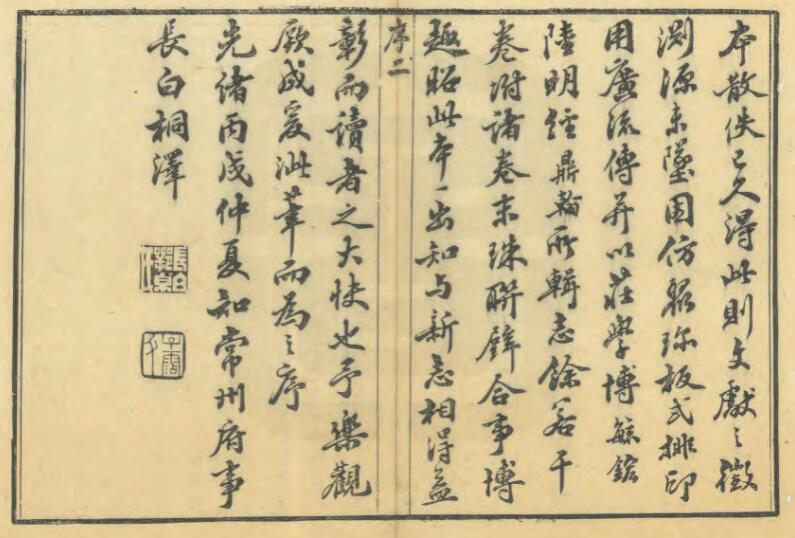 本散佚已久得此則文獻之徵
淵源未墜因仿聚珍板式排印
用廣流傳并以莊學博毓鋐
陸明經鼎翰所輯志餘若干
卷附諸卷末珠聯璧合事博
趣昭此本一出知与新志相得益
序二
彰而讀者之大快也予樂觀
厥成爰泚筆而為之序
光緒丙戌仲夏知常州府事
長白桐澤